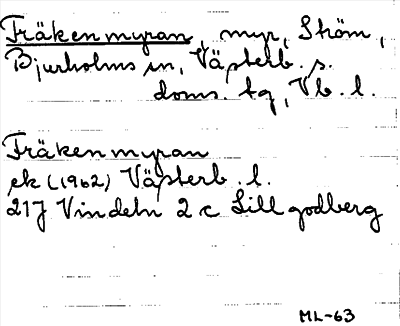 Fräkenmyran, myr, Ström,
Bjurholms sn, Västerb. s.
doms. tg, Vb. l.
Fräkenmyran
ek (1962) Västerb. l.
21J Vindeln 2 c Lillgodberg
ML-63